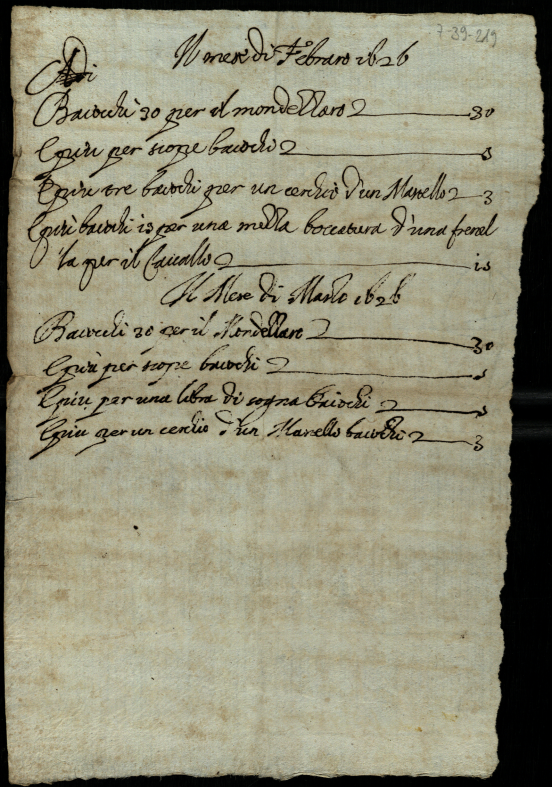 7-39-219
Il mese di Febraro 1626
Adi
Baiocchi 30 per il mondezzaro 30
E piu per scope baiochi 5
E piu tre baiochi per un cerchio d'un Mastello 3
E piu baiochi 15 per una mezza boccatura d'una frenel
la per il Cauallo 15
Il Mese di Marzo 1626
Baiocchi 30 per il Mondezzaro 30
E piu per scope baiochi 5
E piu per una libra di sogna baiochi 5
E piu per un cerchio d'un Mastello baiochi 3